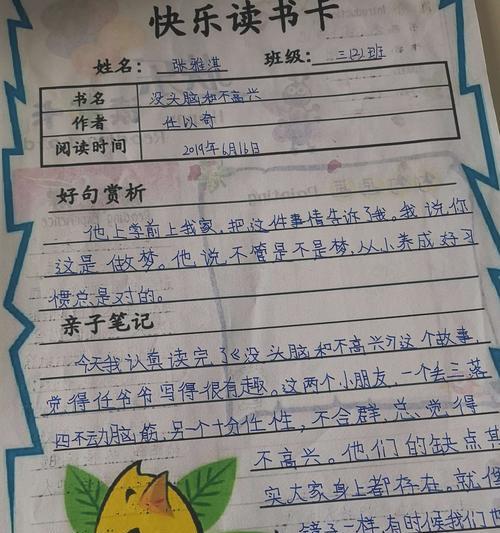 快乐读书卡
姓名: 张雅淇 班级: 三(2)班
书名 没头脑和不高兴
作者 任以奇
阅读时间 2019年6月16日
好句赏析
他上学前上我家,把这件事情告诉了我。我说,你
这是做梦。他说不管是不是梦,从小养成好习
惯总是对的。
亲子笔记
今天我认真读完了《没头脑和不高兴》这个故事
觉得任爷爷写得很有趣。这两个小朋友,一个丢三落
四不动脑筋,另一个十分任性,不合群,总觉得
不高兴。他们的缺点其
实大家身上都存在。就像
镜子一样,有时候我们也